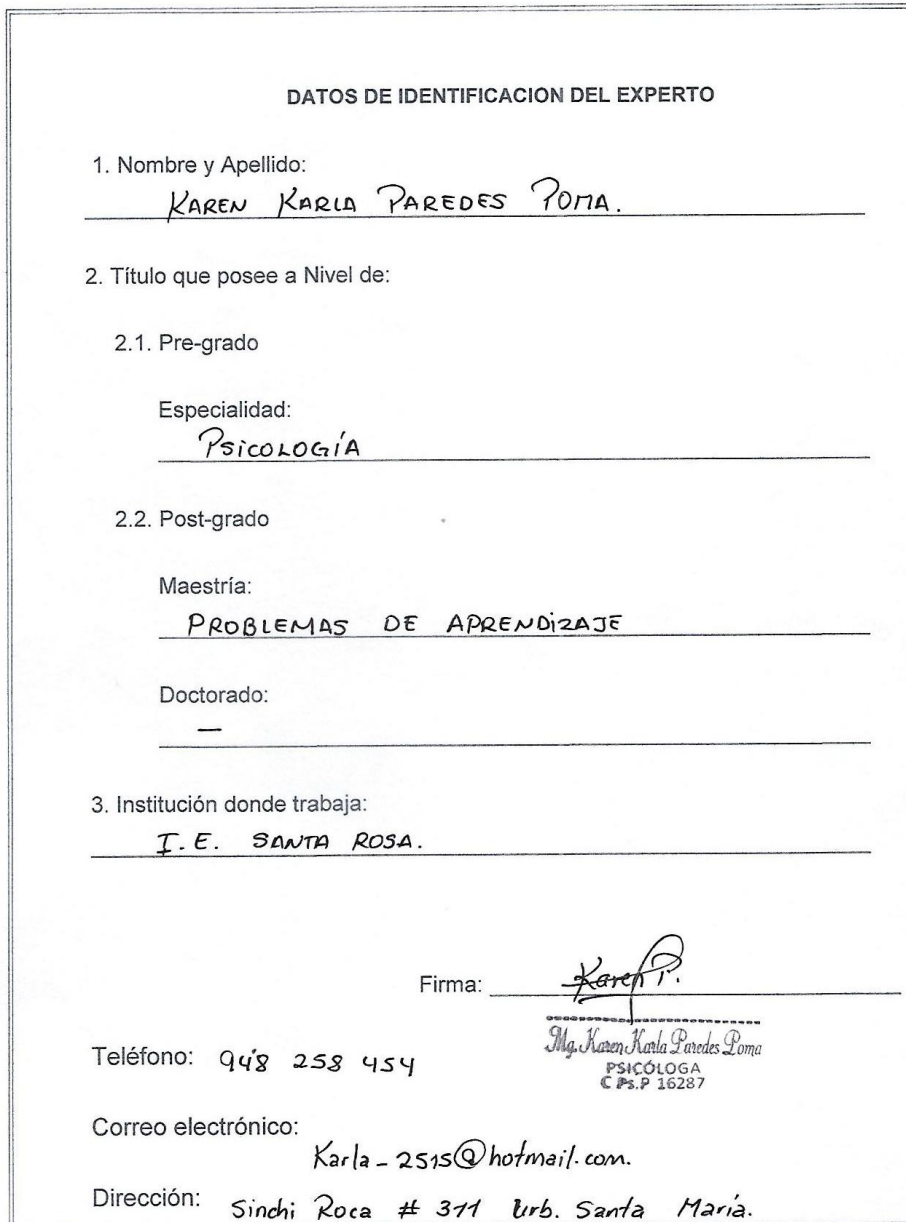 DATOS DE IDENTIFICACION DEL EXPERTO
1. Nombre y Apellido:
KAREN KARLA PAREDES POMA.
2. Título que posee a Nivel de:
2.1. Pre-grado
Especialidad:
PSICOLOGÍA
2.2. Post-grado
Maestría:
PROBLEMAS DE APRENDIZAJE
Doctorado:
—
3. Institución donde trabaja:
I.E. SANTA ROSA.
Firma: Karen P.
Mg. Karen Karla Paredes Poma
PSICÓLOGA
C Ps.P 16287
Teléfono: 948 258 454
Correo electrónico:
Karla-2515@hotmail.com.
Dirección: Sinchi Roca # 311 Urb. Santa María.